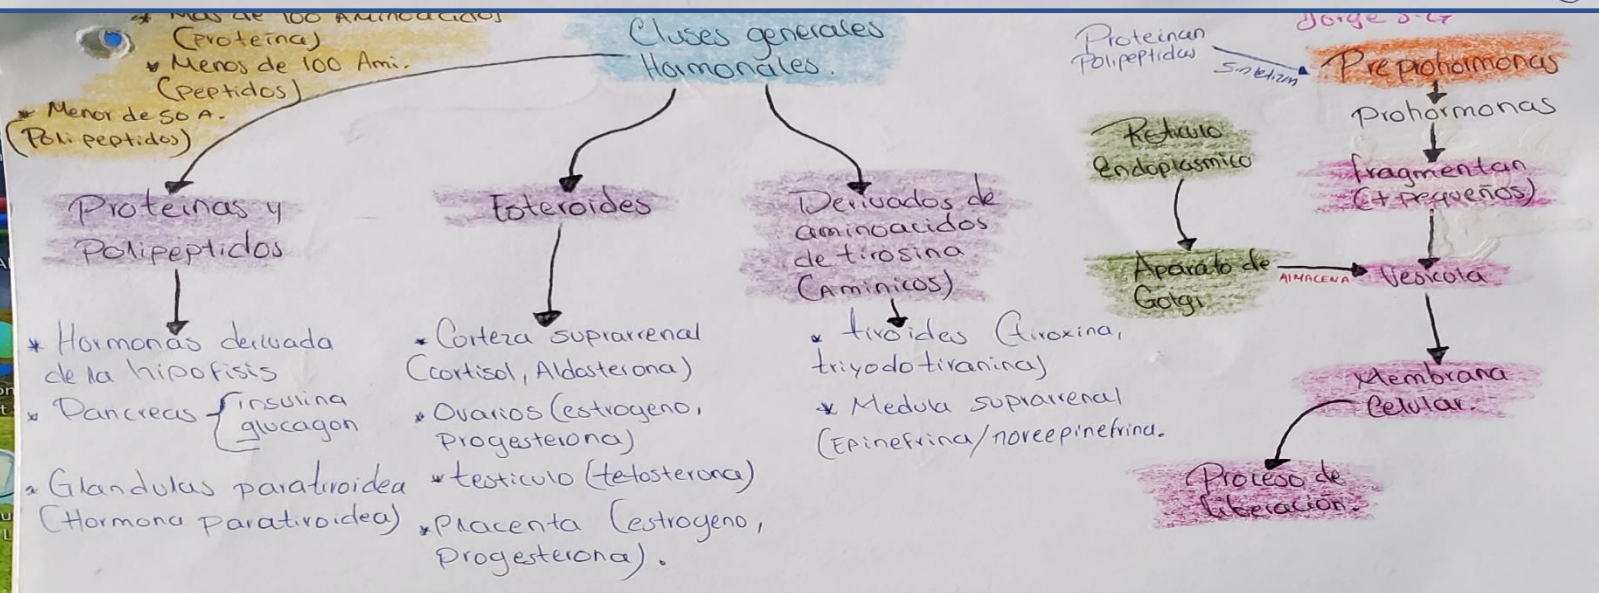 * Mas de 100 Aminoacidos
(proteina)
* Menos de 100 Ami.
(peptidos)
* Menor de 50 A.
(Polipeptidos)
Clases generales
Hormonales.
Proteinas y
Polipeptidos
* Hormonas derivada
de la hipofisis
* Pancreas { insulina
glucagon
* Glandulas paratiroidea
(Hormona paratiroidea)
Esteroides
* Corteza suprarrenal
(cortisol, Aldosterona)
* Ovarios (estrogeno,
Progesterona)
* testiculo (tetosterona)
* Placenta (estrogeno,
Progesterona).
Derivados de
aminoacidos
de tirosina
(Aminicos)
* tiroides (tiroxina,
triyodotiranina)
* Medula suprarrenal
(Epinefrina/noreepinefrina.
Jorge
Proteinan
Polipeptidas
Sintetizan
Preprohormonas
Prohormonas
fragmentan
(+ pequeños)
Reticulo
endoplasmico
Aparato de
Golgi
ALMACENA
Vesicola
Membrana
Celular.
Proceso de
liberación.